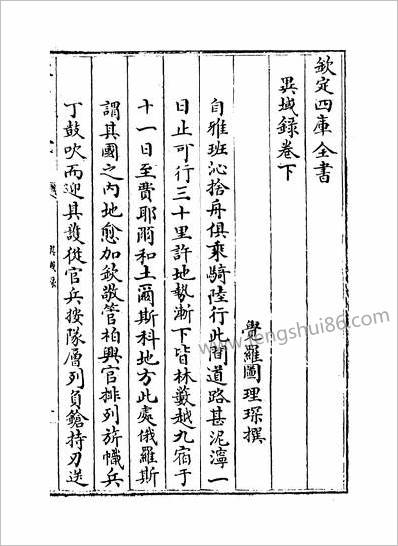 欽定四庫全書
異域錄卷下
覺羅圖理琛撰
自雅班沁捨舟俱乘騎陸行此間道路甚泥濘一
日止可行三十里許地勢漸下皆林藪越九宿于
十一日至費耶爾和土爾斯科地方此處俄羅斯
謂其國之内地愈加欽敬管柏興官排列旂幟兵
丁鼓吹而迎其護從官兵按隊層列負鎗持刃送
異域錄
www.fengshui86.com